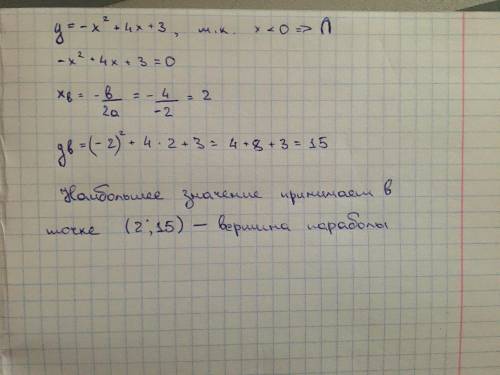 y = -x² + 4x + 3, т.к. x < 0 => ∩
-x² + 4x + 3 = 0
xв = -в/2a = -4/-2 = 2
yв = (-2)² + 4 · 2 + 3 = 4 + 8 + 3 = 15
Наибольшее значение принимает в
точке (2; 15) — вершина параболы